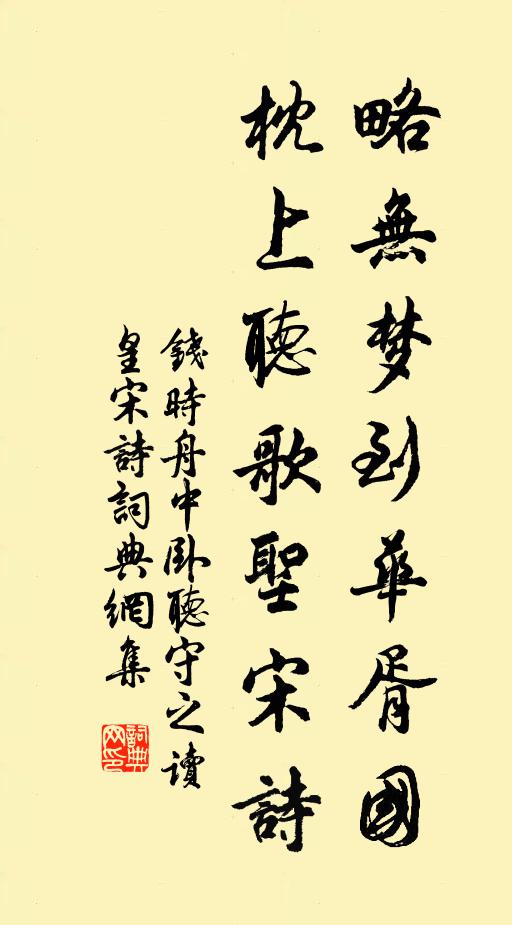 略無梦到華胥國
枕上聽歌聖宋詩
錢時舟中卧聽守之讀
皇宋詩詞典網集
詞典網印